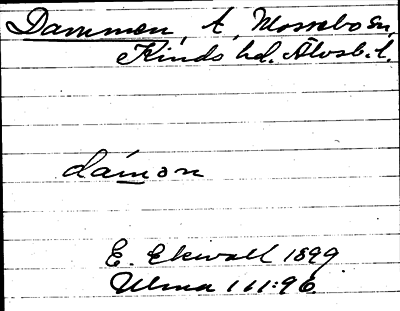 Dammen, t, Mossebo sn,
Kinds hd. Älvsb. l.
dámon
E. Ekwall 1899
Ulma 161:96